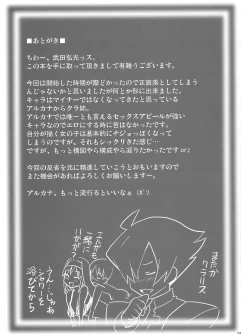 ■あとがき■
ちわ〜、武田弘光ッス。
この本を手に取って頂きまして有難うございます。
今回は開始した時期が際どかったので正直落としてしまう
んじゃないか〜と思いましたが何とか形に出来ました。
キャラはマイナーではなくなってきたと思っている
アルカナからクラリ誌。
アルカナでは唯一とも言えるセックスアピールが強い
キャラなのでエロにする時に苦はなかったです。
自分が描く女の子は基本的にナジョっぽくなって
しまうのですが、それもシックリきた感じ…
ですが、もっと構図やら構成やら凝りたかったですorz
今回の反省を元に精進していこうとおもいますので
また機会があればよろしくお願いします〜。
アルカナ、もっと流行るといいなぁ（ボソ
またか
クラリス
エルザも
一緒に
いかが？
うん…じゃあ
シャワーを
浴びてから